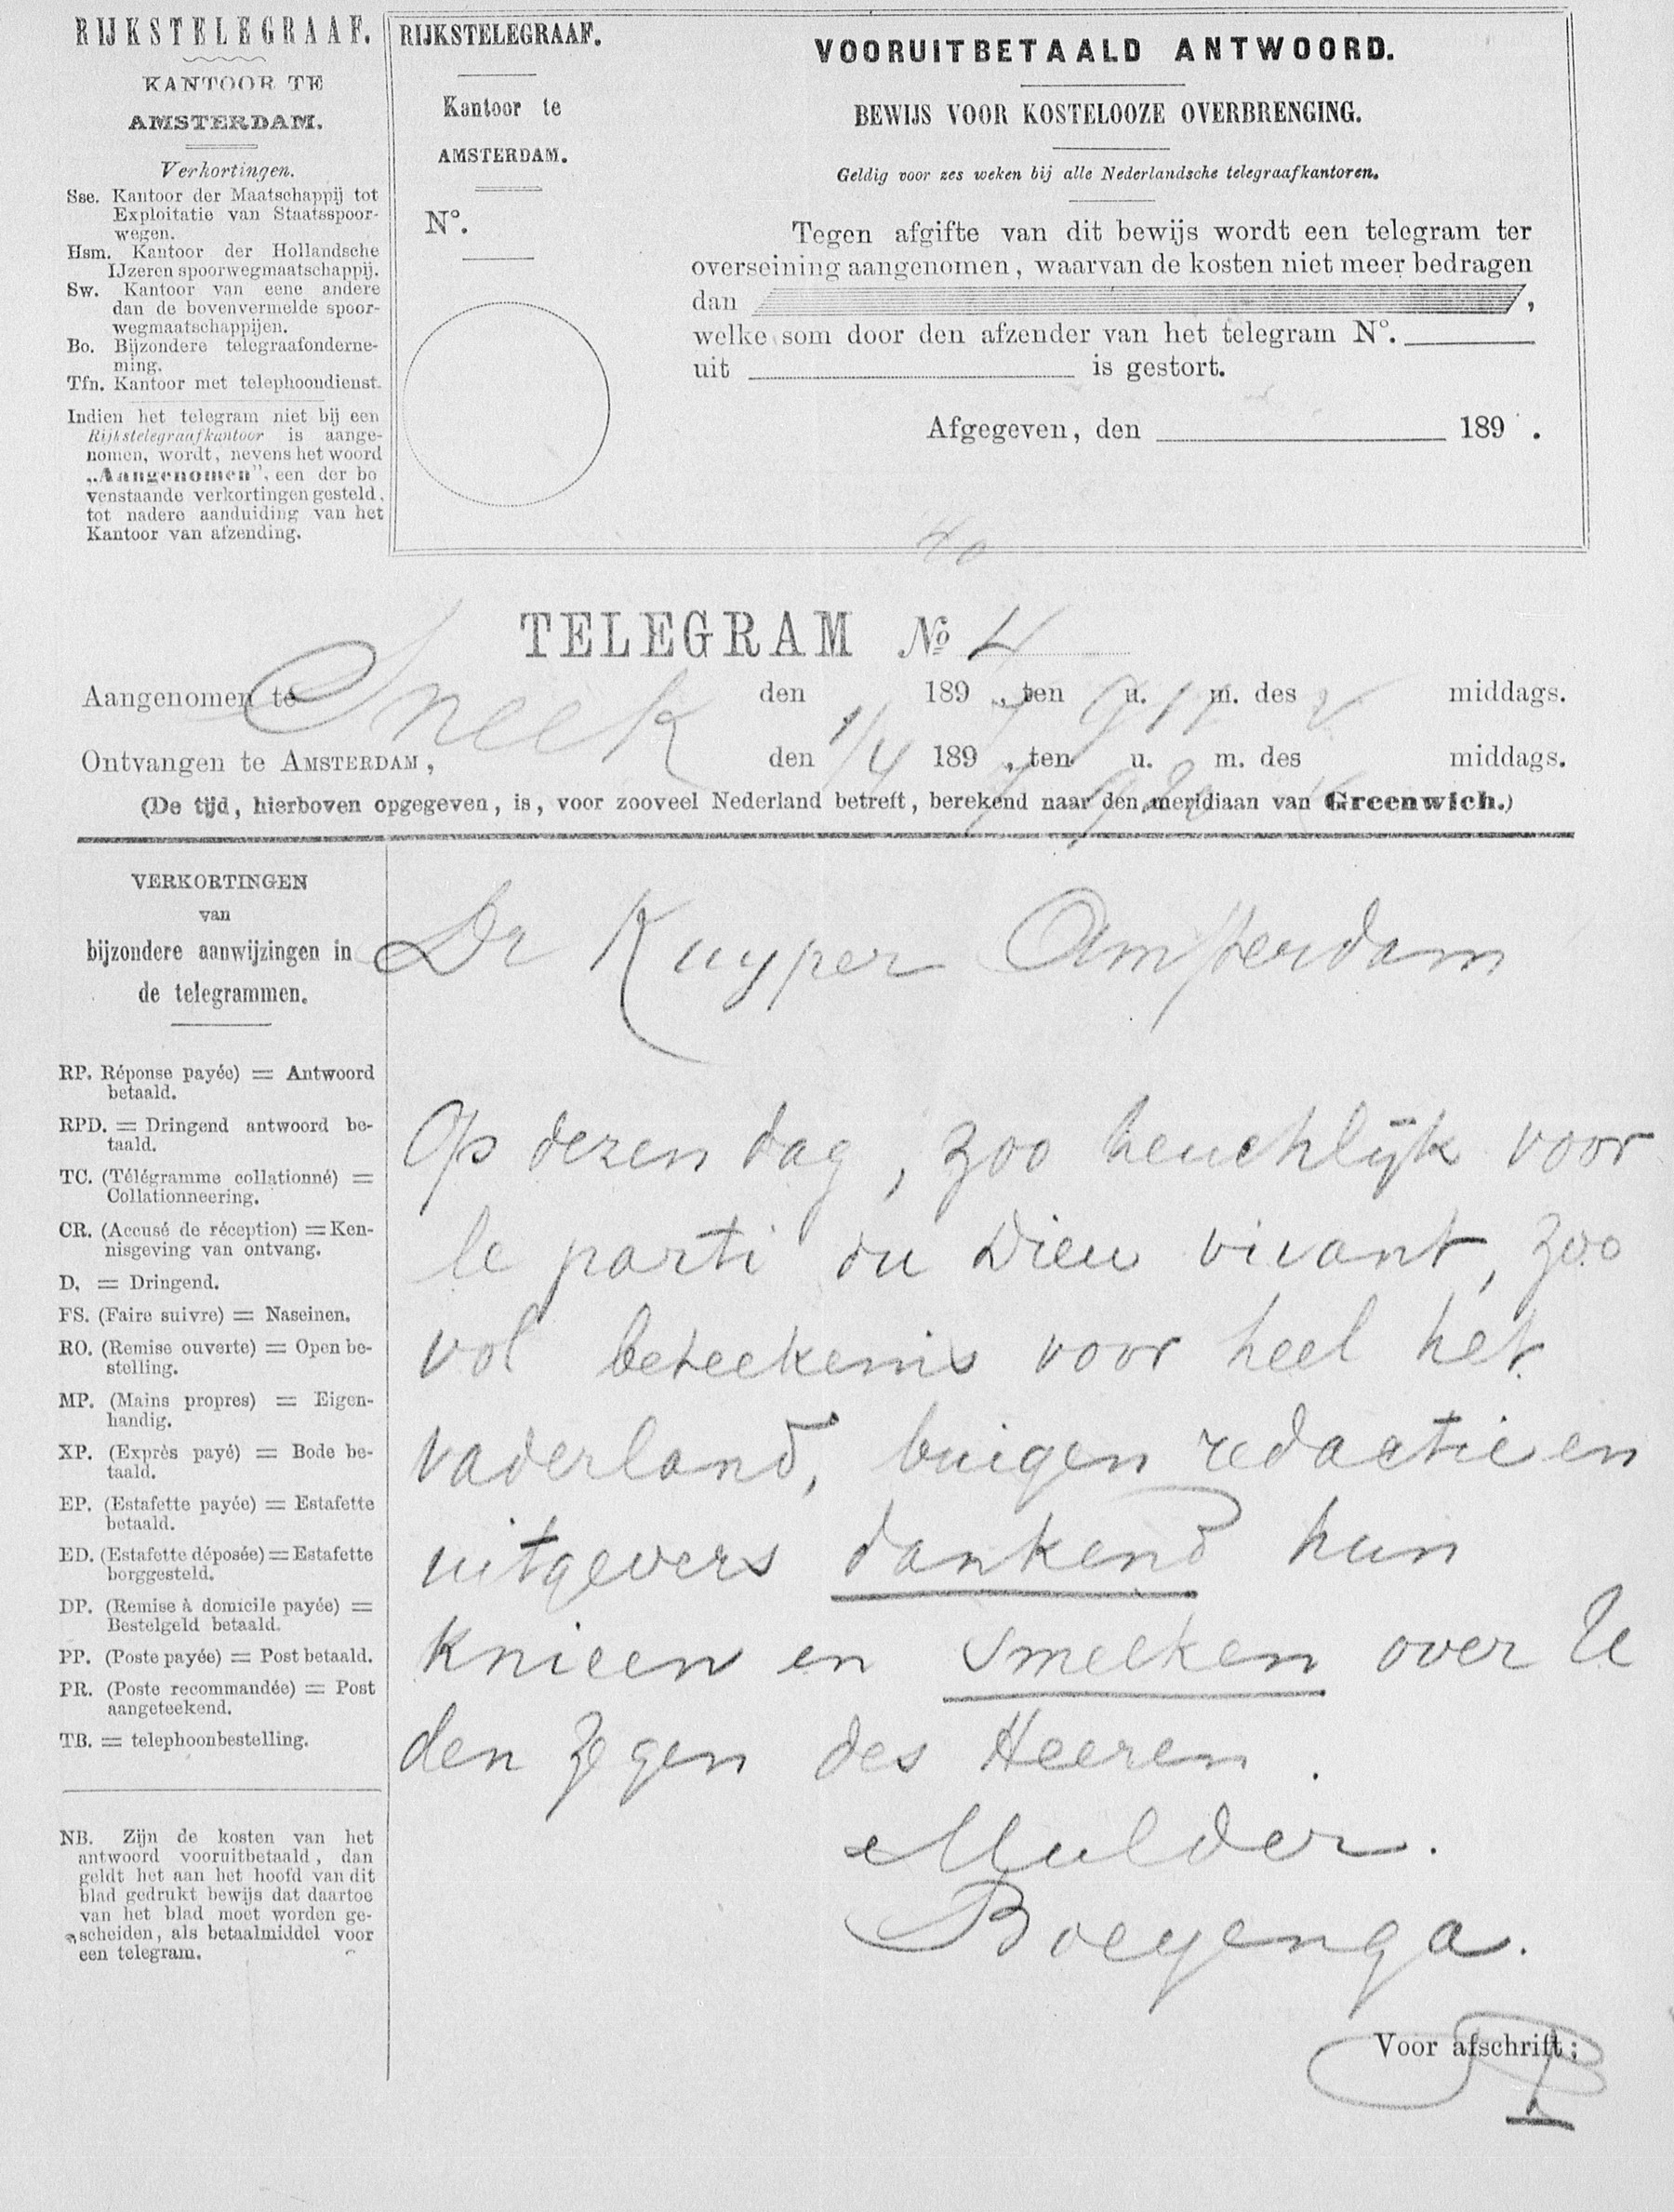 RIJKSTELEGRAAF.
KANTOOR TE
AMSTERDAM.
Verkortingen.
Sse. Kantoor der Maatschappij tot
Exploitatie van Staatsspoor-
wegen.
Hsm. Kantoor der Hollandsche
IJzeren spoorwegmaatschappij.
Sw. Kantoor van eene andere
dan de bovenvermelde spoor-
wegmaatschappijen.
Bo. Bijzondere telegraafonderne-
ming.
Tfn. Kantoor met telephoondienst.
Indien het telegram niet bij een
Rijkstelegraafkantoor is aange-
nomen, wordt, nevens het woord
„Aangenomen", een der bo
venstaande verkortingen gesteld,
tot nadere aanduiding van het
Kantoor van afzending.
RIJKSTELEGRAAF.
Kantoor te
AMSTERDAM.
N°.
VOORUITBETAALD ANTWOORD.
BEWIJS VOOR KOSTELOOZE OVERBRENGING.
Geldig voor zes weken bij alle Nederlandsche telegraafkantoren.
Tegen afgifte van dit bewijs wordt een telegram ter
overseining aangenomen, waarvan de kosten niet meer bedragen
dan ,
welke som door den afzender van het telegram N°.
uit is gestort.
Afgegeven, den 189 .
TELEGRAM No 4
Aangenomen te Sneek den 189 , ten 9 u. 11 m. des v middags.
Ontvangen te AMSTERDAM, den 1/4 1897, ten 9 u. m. des middags.
(De tijd, hierboven opgegeven, is, voor zooveel Nederland betreft, berekend naar den meridiaan van Greenwich.)
VERKORTINGEN
van
bijzondere aanwijzingen in
de telegrammen.
RP. Réponse payée) = Antwoord
betaald.
RPD. = Dringend antwoord be-
taald.
TC. (Télégramme collationné) =
Collationneering.
CR. (Accusé de réception) = Ken-
nisgeving van ontvang.
D. = Dringend.
FS. (Faire suivre) = Naseinen.
RO. (Remise ouverte) = Open be-
stelling.
MP. (Mains propres) = Eigen-
handig.
XP. (Exprès payé) = Bode be-
taald.
EP. (Estafette payée) = Estafette
betaald.
ED. (Estafette déposée) = Estafette
borggesteld.
DP. (Remise à domicile payée) =
Bestelgeld betaald.
PP. (Poste payée) = Post betaald.
PR. (Poste recommandée) = Post
aangeteekend.
TB. = telephoonbestelling.
NB. Zijn de kosten van het
antwoord vooruitbetaald, dan
geldt het aan het hoofd van dit
blad gedrukt bewijs dat daartoe
van het blad moet worden ge-
scheiden, als betaalmiddel voor
een telegram.
Dr Kuyper Amsterdam
Op dezen dag, zoo heuchlijk voor
le parti du Dieu vivant, zoo
vol beteekenis voor heel het
vaderland, buigen redactie en
uitgevers dankend hun
knieen en smeeken over U
den zegen des Heeren.
Mulder.
Boeyenga.
Voor afschrift: